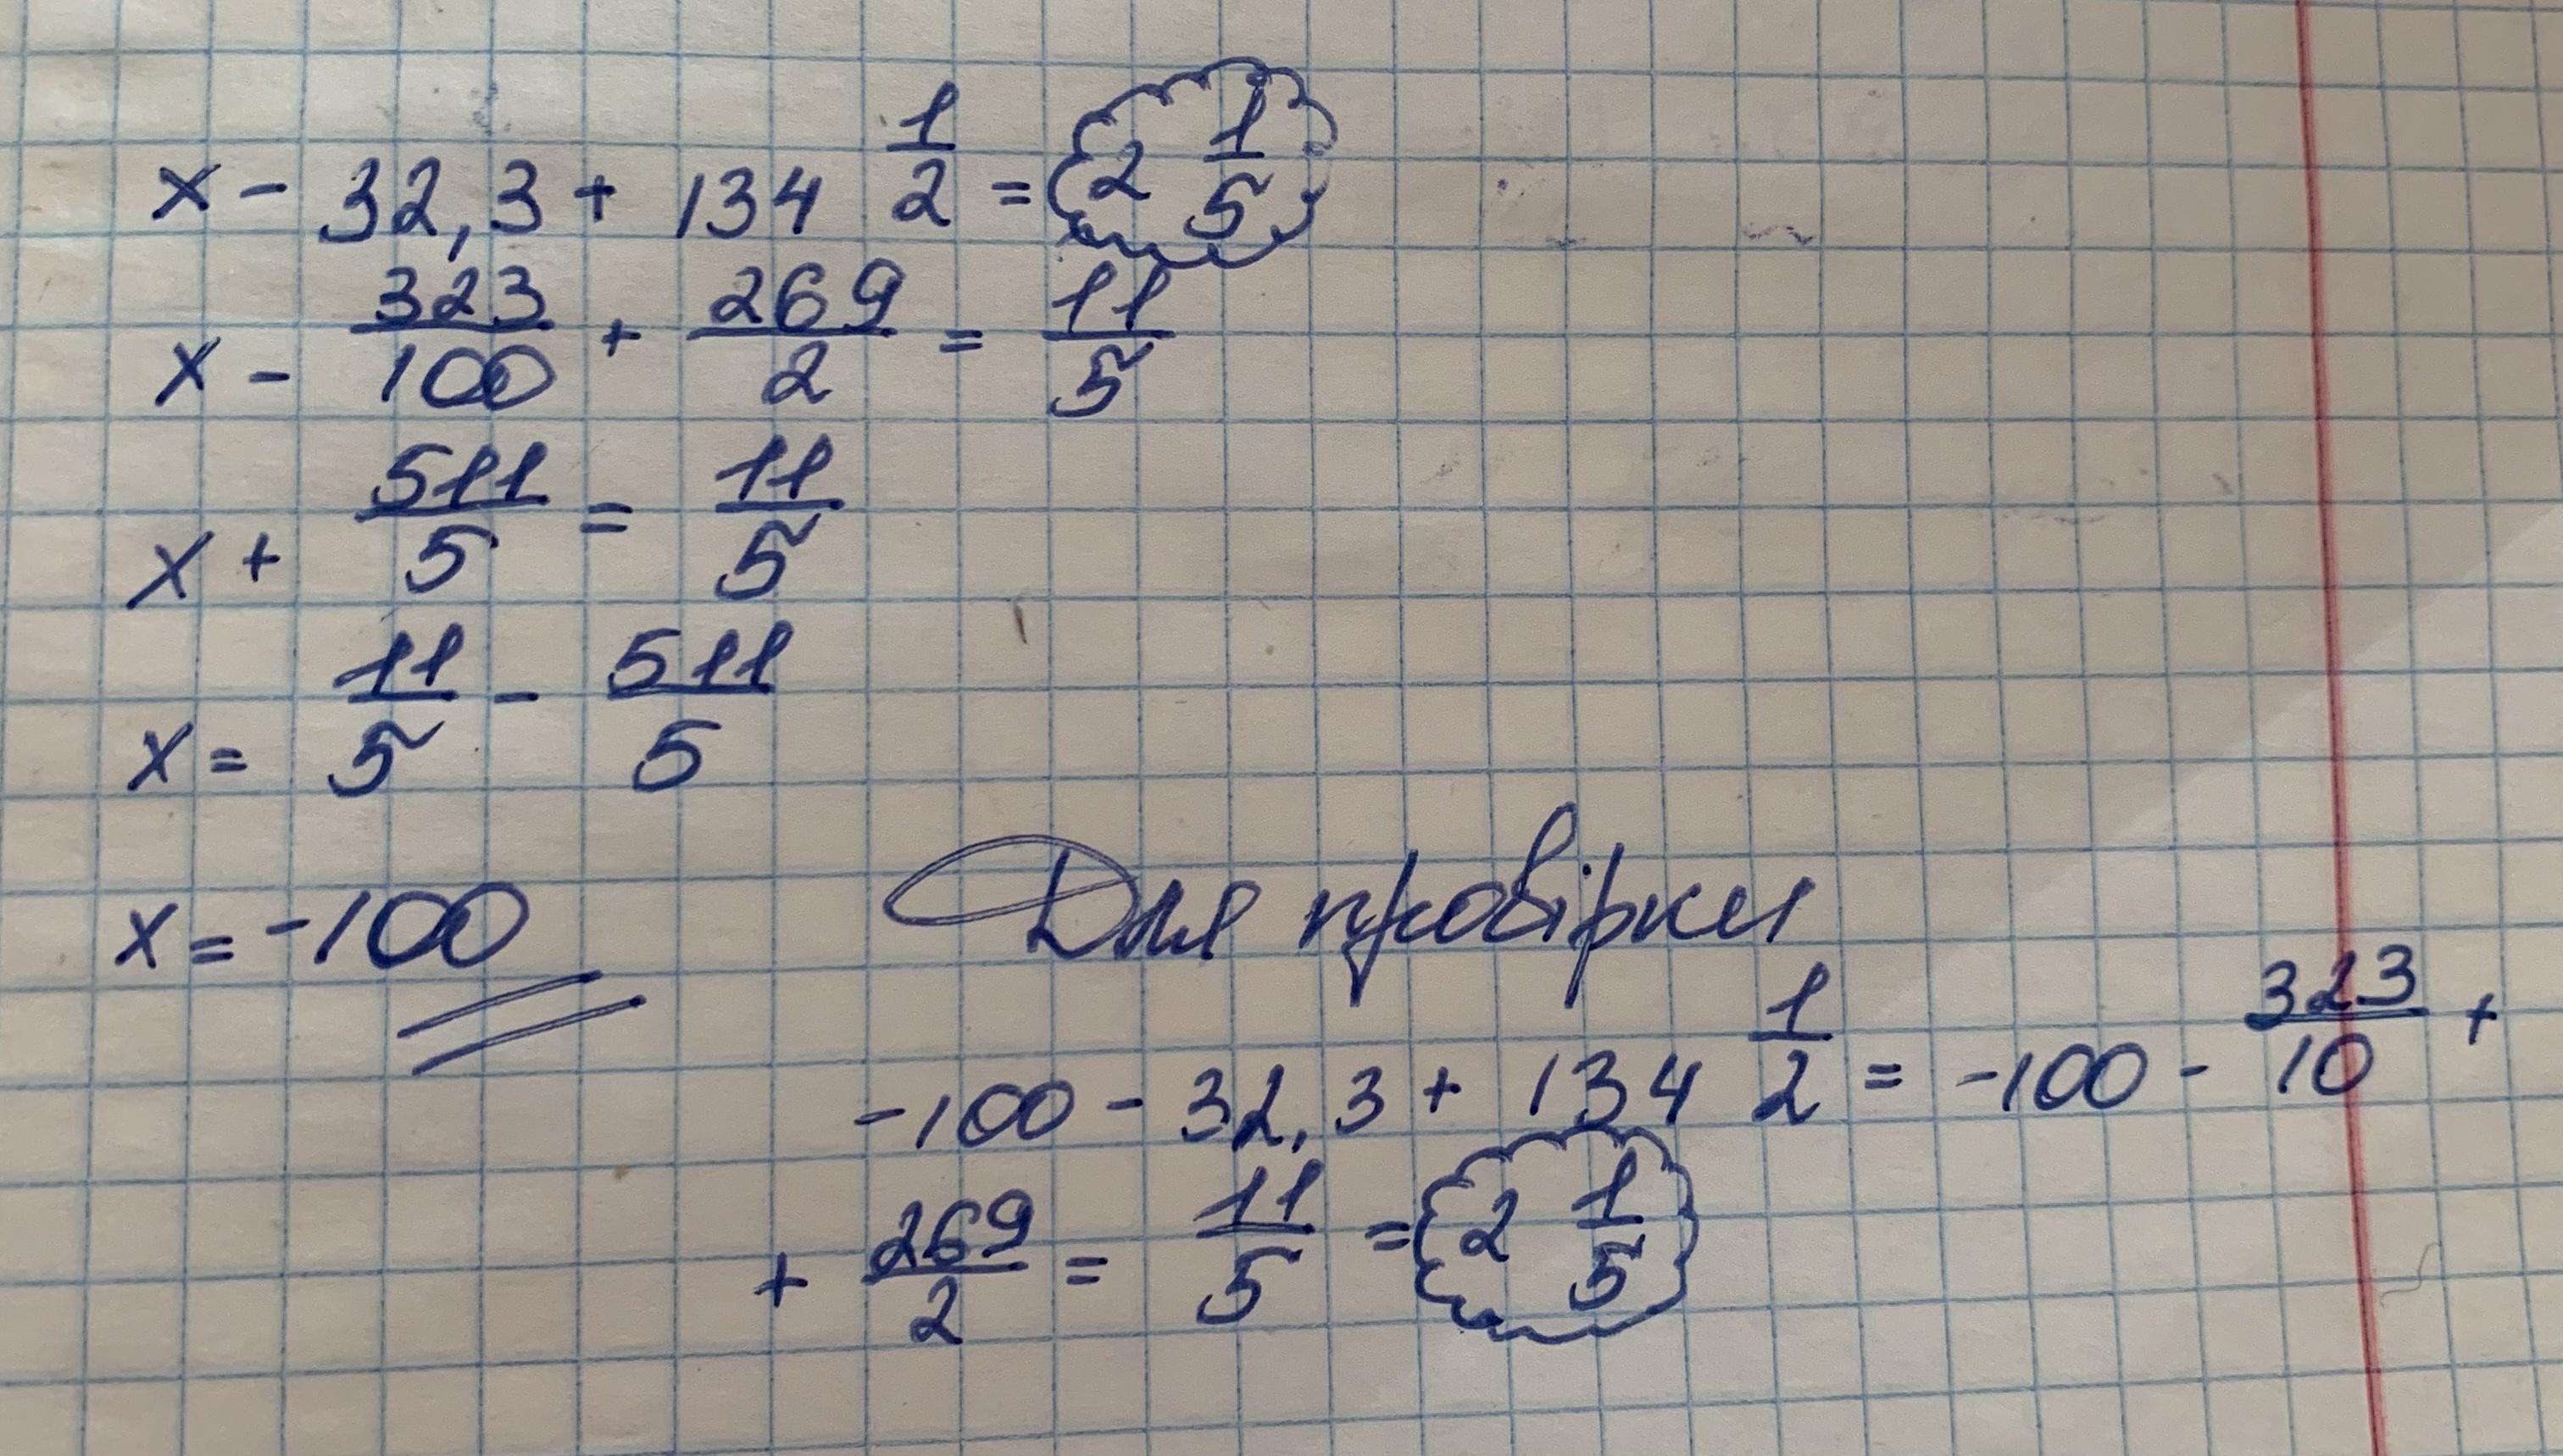 x - 32,3 + 134 1/2 = 2 1/5
x - 323/100 + 269/2 = 11/5
x + 511/5 = 11/5
x = 11/5 - 511/5
x = -100
Для провірки
-100 - 32,3 + 134 1/2 = -100 - 323/10 +
+ 269/2 = 11/5 = 2 1/5